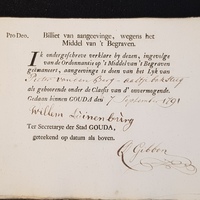 Pro Deo. Billiet van aangeevinge, wegens het
Middel van 't Begraven.
IK ondergeschreve verklare by dezen, ingevolge
van de Ordonnantie op 't Middel van 't Begraven
geëmaneert, aangeevinge te doen van het Lyk van
Pieter van den
als gehoorende onder de Classis van d' onvermogende.
Gedaan binnen GOUDA den 7 September 1791
Willem Luinenburg
Ter Secretarye der Stad GOUDA,
geteekend op datum als boven.